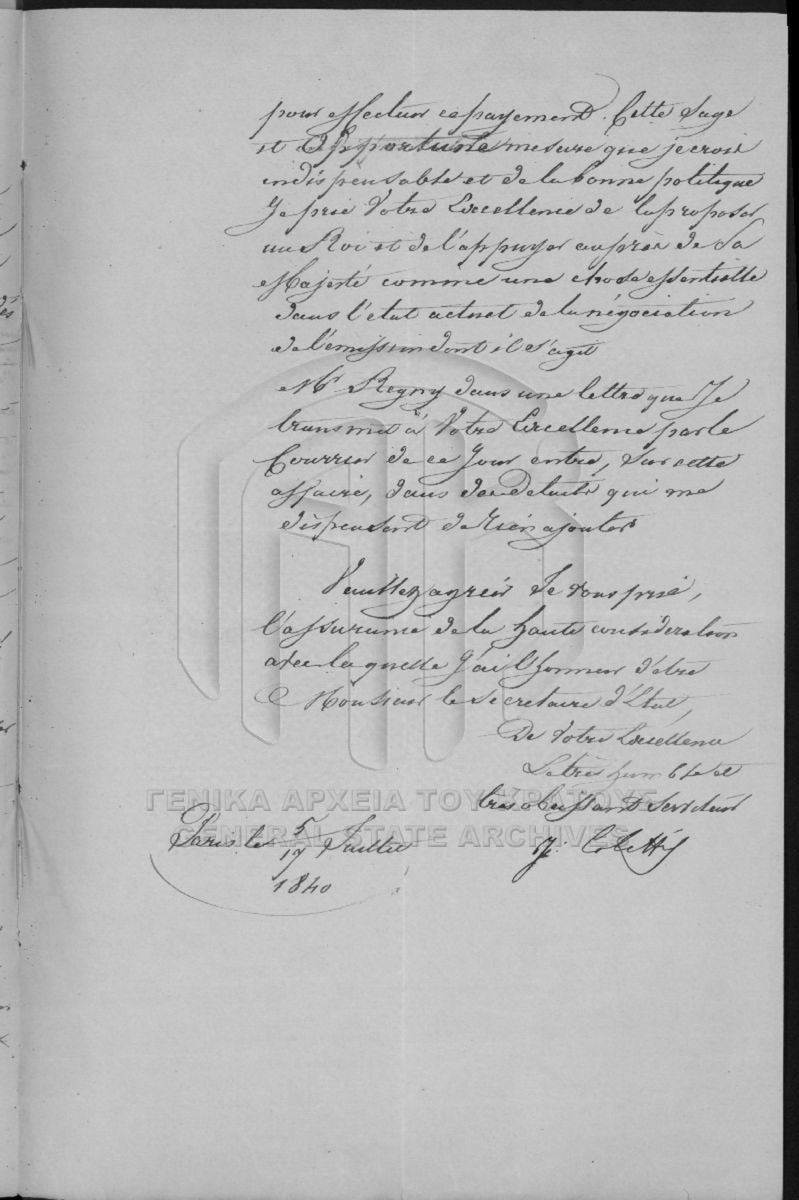 pour effectuer ce payement. Cette sage
et opportune mesure que je crois
indispensable et de la bonne politique
Je prie Votre Excellence de la proposer
au Roi et de l'appuyer auprès de Sa
Majesté comme une chose essentielle
dans l'état actuel de la négociation
de l'émission dont il s'agit
Mr Regny dans une lettre que Je
transmet à Votre Excellence par le
Courrier de ce Jour entre, sur cette
affaire, dans des details qui me
dispensent de rien ajouter
Veuillez agréer Je vous prie,
l'assurance de la haute considération
avec laquelle J'ai l'honneur d'etre
Monsieur le Secretaire d'Etat,
De Votre Excellence
Le très humble et
très obeissant Serviteur
ΓΕΝΙΚΑ ΑΡΧΕΙΑ ΤΟΥ ΚΡΑΤΟΥΣ
GENERAL STATE ARCHIVES
Paris le 5/17 Juillet
J. Colettis
1840